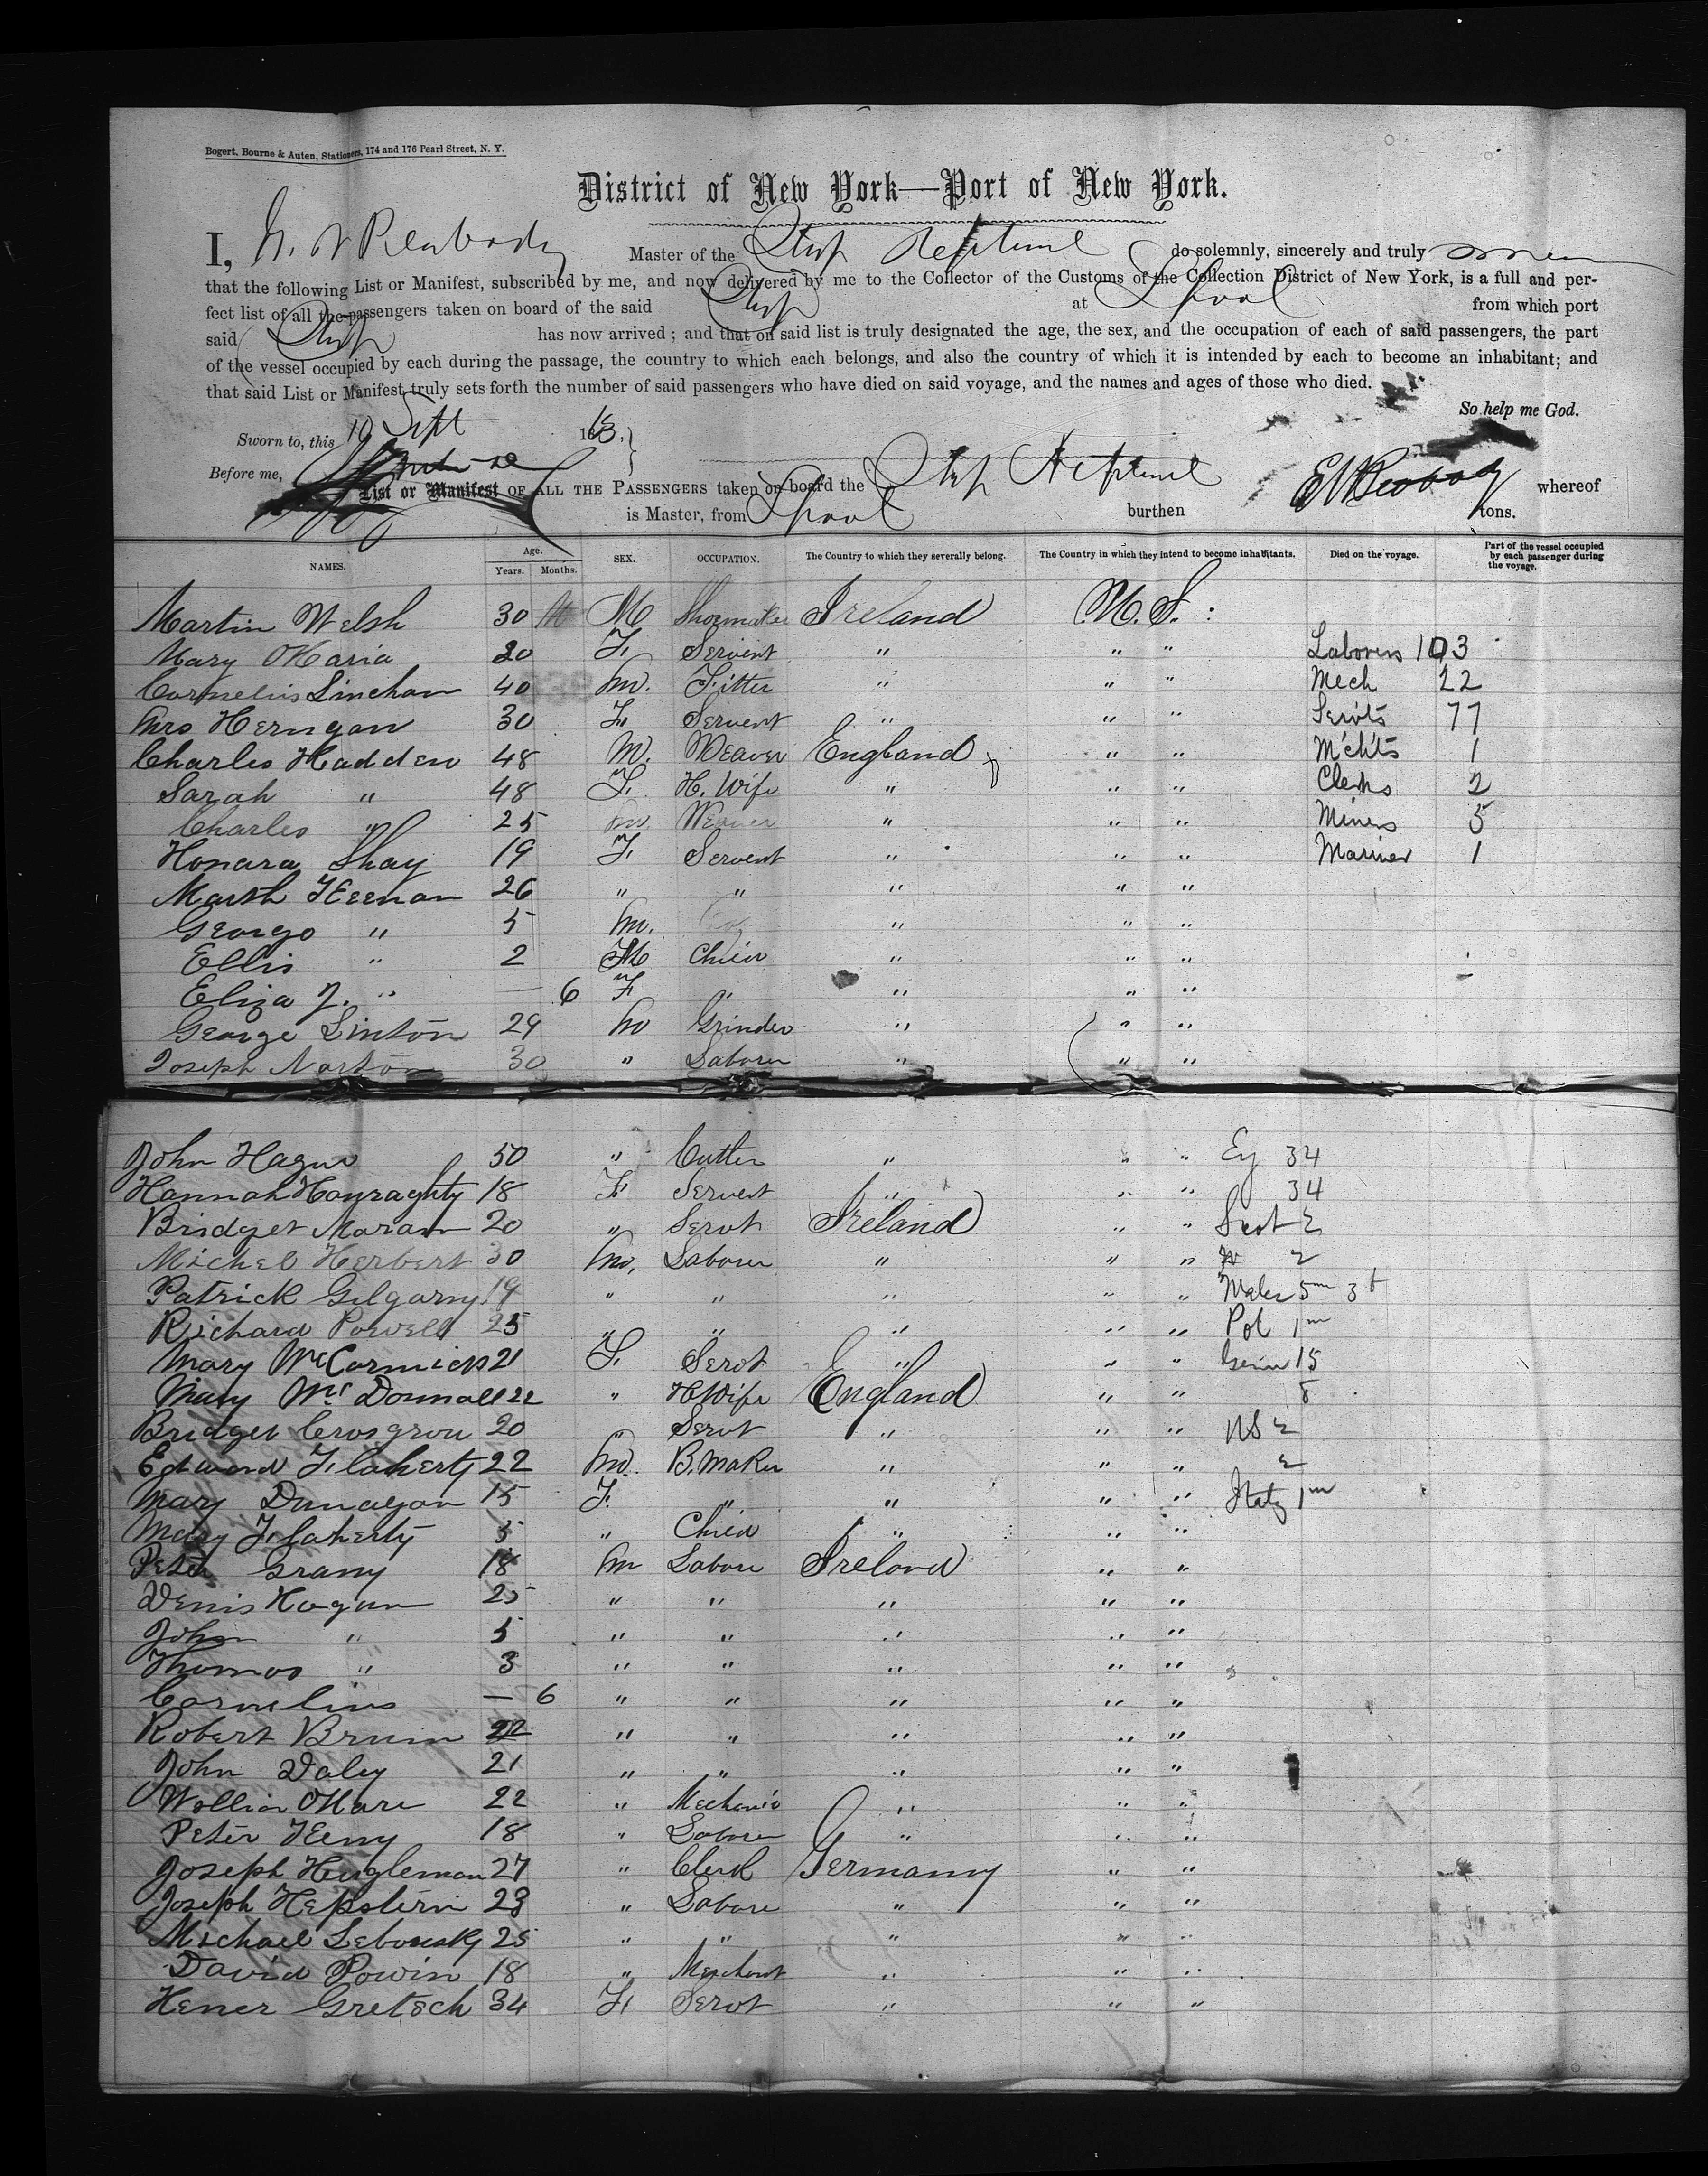 Bogert, Bourne & Auten, Stationers, 174 and 176 Pearl Street, N. Y.
District of New York—Port of New York.
I, Peabody Master of the Ship Neptune do solemnly, sincerely and truly
that the following List or Manifest, subscribed by me, and now delivered by me to the Collector of the Customs of the Collection District of New York, is a full and per-
fect list of all the passengers taken on board of the said Ship at Lpool from which port
said Ship has now arrived; and that on said list is truly designated the age, the sex, and the occupation of each of said passengers, the part
of the vessel occupied by each during the passage, the country to which each belongs, and also the country of which it is intended by each to become an inhabitant; and
that said List or Manifest truly sets forth the number of said passengers who have died on said voyage, and the names and ages of those who died.
So help me God.
Sworn to, this 19 Sept 18
Before me,
List or Manifest OF ALL THE PASSENGERS taken on board the Ship Neptune Peabody whereof
is Master, from Lpool burthen tons.
NAMES. Age. Years. Months. SEX. OCCUPATION. The Country to which they severally belong. The Country in which they intend to become inhabitants. Died on the voyage. Part of the vessel occupied by each passenger during the voyage.
Martin Welsh 30 M Shoemaker Ireland U. S. :
Mary OHaria 20 F. Servent " " " Laborers 103
Cornelius Linehan 40 M. Fitter " " " Mech 22
Mrs Herngan 30 F. Servent " " " Servts 77
Charles Hadden 48 M. Weaver England " " Mchts 1
Sarah " 48 F. H. Wife " " " Clerks 2
Charles " 25 M. Weaver " " " Miners 5
Honara Shay 19 F. Servent " " " Mariner 1
Marth Keenan 26 " " " " "
George " 5 M. " " "
Ellis " 2 M Child " " "
Eliza J. " — 6 F " " " "
George Linton 29 M Grinder " " "
Joseph Norton 30 " Laborer " " "
John Hague 50 " Cutler " " " Eg 34
Hannah Hanraghty 18 F Servent " " " 34
Bridget Moran 20 " Servt Ireland " " Scot 2
Michel Herbert 30 M. Laborer " " " 2
Patrick Gilgarry 19 " " " " " Wales 5m 3f
Richard Powell 25 " " " " " Pol 1m
Mary McCormick 21 F. Servt " " " Germ 15
Mary Mc Donnall 22 " H Wife England " " 8
Bridget Crosgrou 20 " Servt " " " NS 2
Edward Flaherty 22 M. B. Maker " " " 2
Mary Dunagan 15 F. " " " " Italy 1m
Mary Flaherty 5 " Child " " "
Peter Grany 18 M Labore Ireland " "
Denis Hogan 25 " " " " "
John " 5 " " " " "
Thomas " 3 " " " " "
Cornelius — 6 " " " " "
Robert Bruin 22 " " " " "
John Daley 21 " " " " "
William OHare 22 " Mechanic " " "
Peter Keeny 18 " Laborer " " "
Joseph Hugleman 27 " Clerk Germany " "
Joseph Hepstern 23 " Labore " " "
Michael Lebousky 25 " " " " "
David Powin 18 " Merchant " " "
Hener Gretsch 34 F. Servt " " "